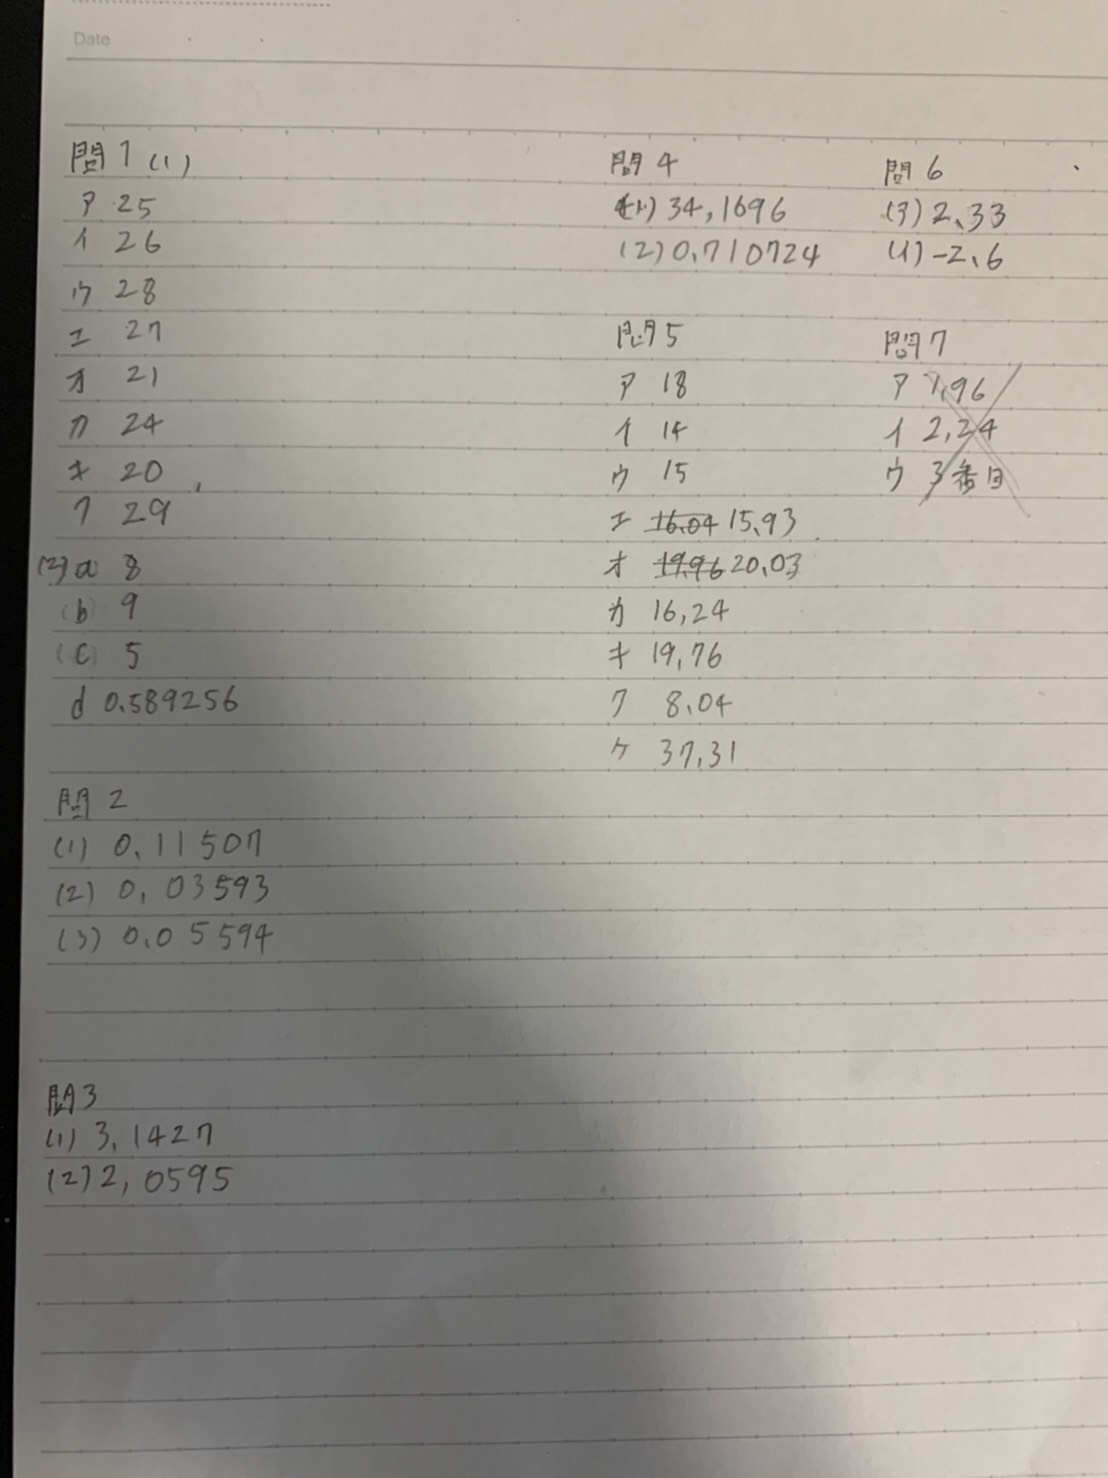 Date
問1 (1)
ア 25
イ 26
ウ 28
エ 27
オ 21
カ 24
キ 20
ク 29
(2) a 8
(b) 9
(c) 5
d 0.589256
問2
(1) 0.11507
(2) 0.03593
(3) 0.05594
問3
(1) 3.1427
(2) 2.0595
問4
(1) 34.1696
(2) 0.710724
問5
ア 18
イ 14
ウ 15
エ 16.04 15.93
オ 19.96 20.03
カ 16.24
キ 19.76
ク 8.04
ケ 37.31
問6
(ア) 2.33
(イ) -2.6
問7
ア 1.96
イ 2.24
ウ 3番目